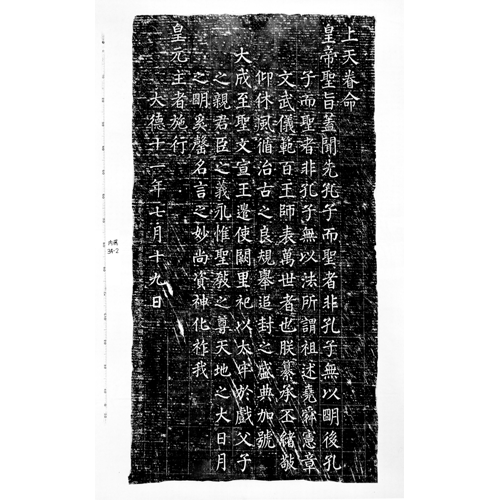 上天眷命
皇帝聖旨蓋聞先孔子而聖者非孔子無以明後孔
子而聖者非孔子無以法所謂祖述堯舜憲章
文武儀範百王師表萬世者也朕纂承丕緒敬
仰休風循治古之良規舉追封之盛典加號
大成至聖文宣王遣使闕里祀以太牢於戲父子
之親君臣之義永惟聖敎之尊天地之大日月
之明奚罄名言之妙尚資神化祚我
皇元主者施行
大德十一年七月十九日